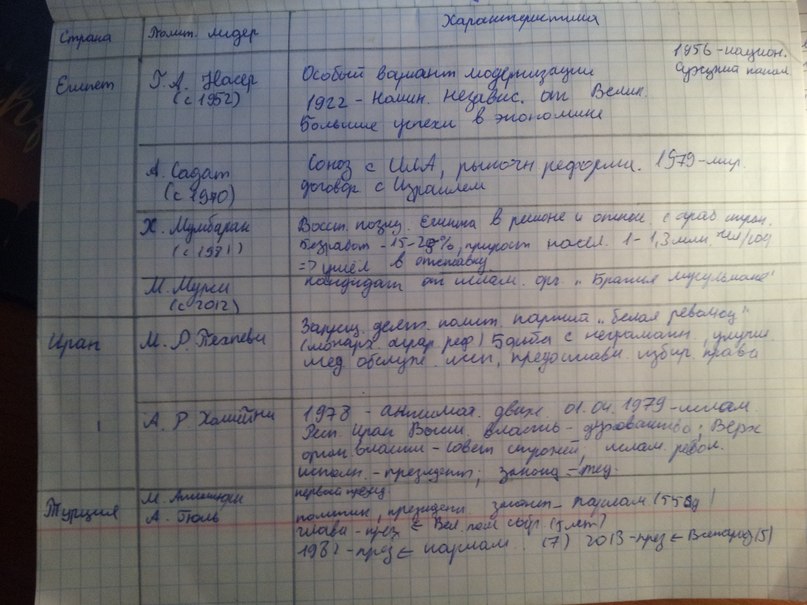 Страна Полит. лидер Характеристика
Египет Г. А. Насер (с 1952)
Особый вариант модернизации 1956 - национ.
Суэцкий канал
1922 - номин. независ. от Велик.
Большие успехи в экономике
А. Садат (с 1970)
Союз с США, рыночн реформы. 1979 - мир.
договор с Израилем
Х. Мумбарак (с 1981)
Восст. позиц. Египта в регионе и отнош. с араб стран.
безработ - 15-20%, прирост насел. 1-1,3 млн. чел/год
=> ушёл в отставку
М. Мурси (с 2012)
кандидат от ислам. орг. "Братья мусульмане"
Иран М. Р. Пехлеви
Запрещ. деят. полит. партий "белая революц"
(монарх. аграр. реф) Борьба с неграмотн, улучш.
мед. обслуж. предоставл избир. права
А. Р Хомейни
1978 - антишах. движ. 01.04.1979 - ислам
Респ. Иран Высш. власть - духовенство; Верх
орган власти - совет стражей, ислам. револ.
исполн. - президент; законод = мед.
Турция М.
первый презид.
А. Гюль
политик, президент законот - парлам (550д)
глава - през <= Вел. нац собр. (7 лет)
1982 - през <= парлам. (7) 2013 - през <= Всенарод (5)